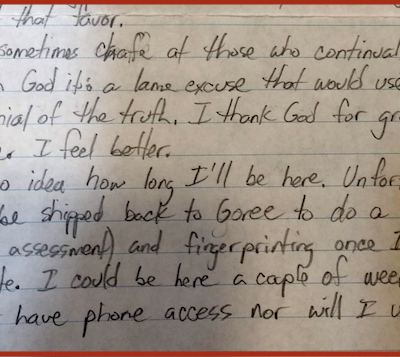 that favor.
sometimes chafe at those who continual
God it's a lame excuse that would use
nial of the truth. I thank God for gr
I feel better.
o idea how long I'll be here. Unfor
be shipped back to Goree to do a
assessment) and fingerprinting once I
te. I could be here a couple of wee
have phone access nor will I u